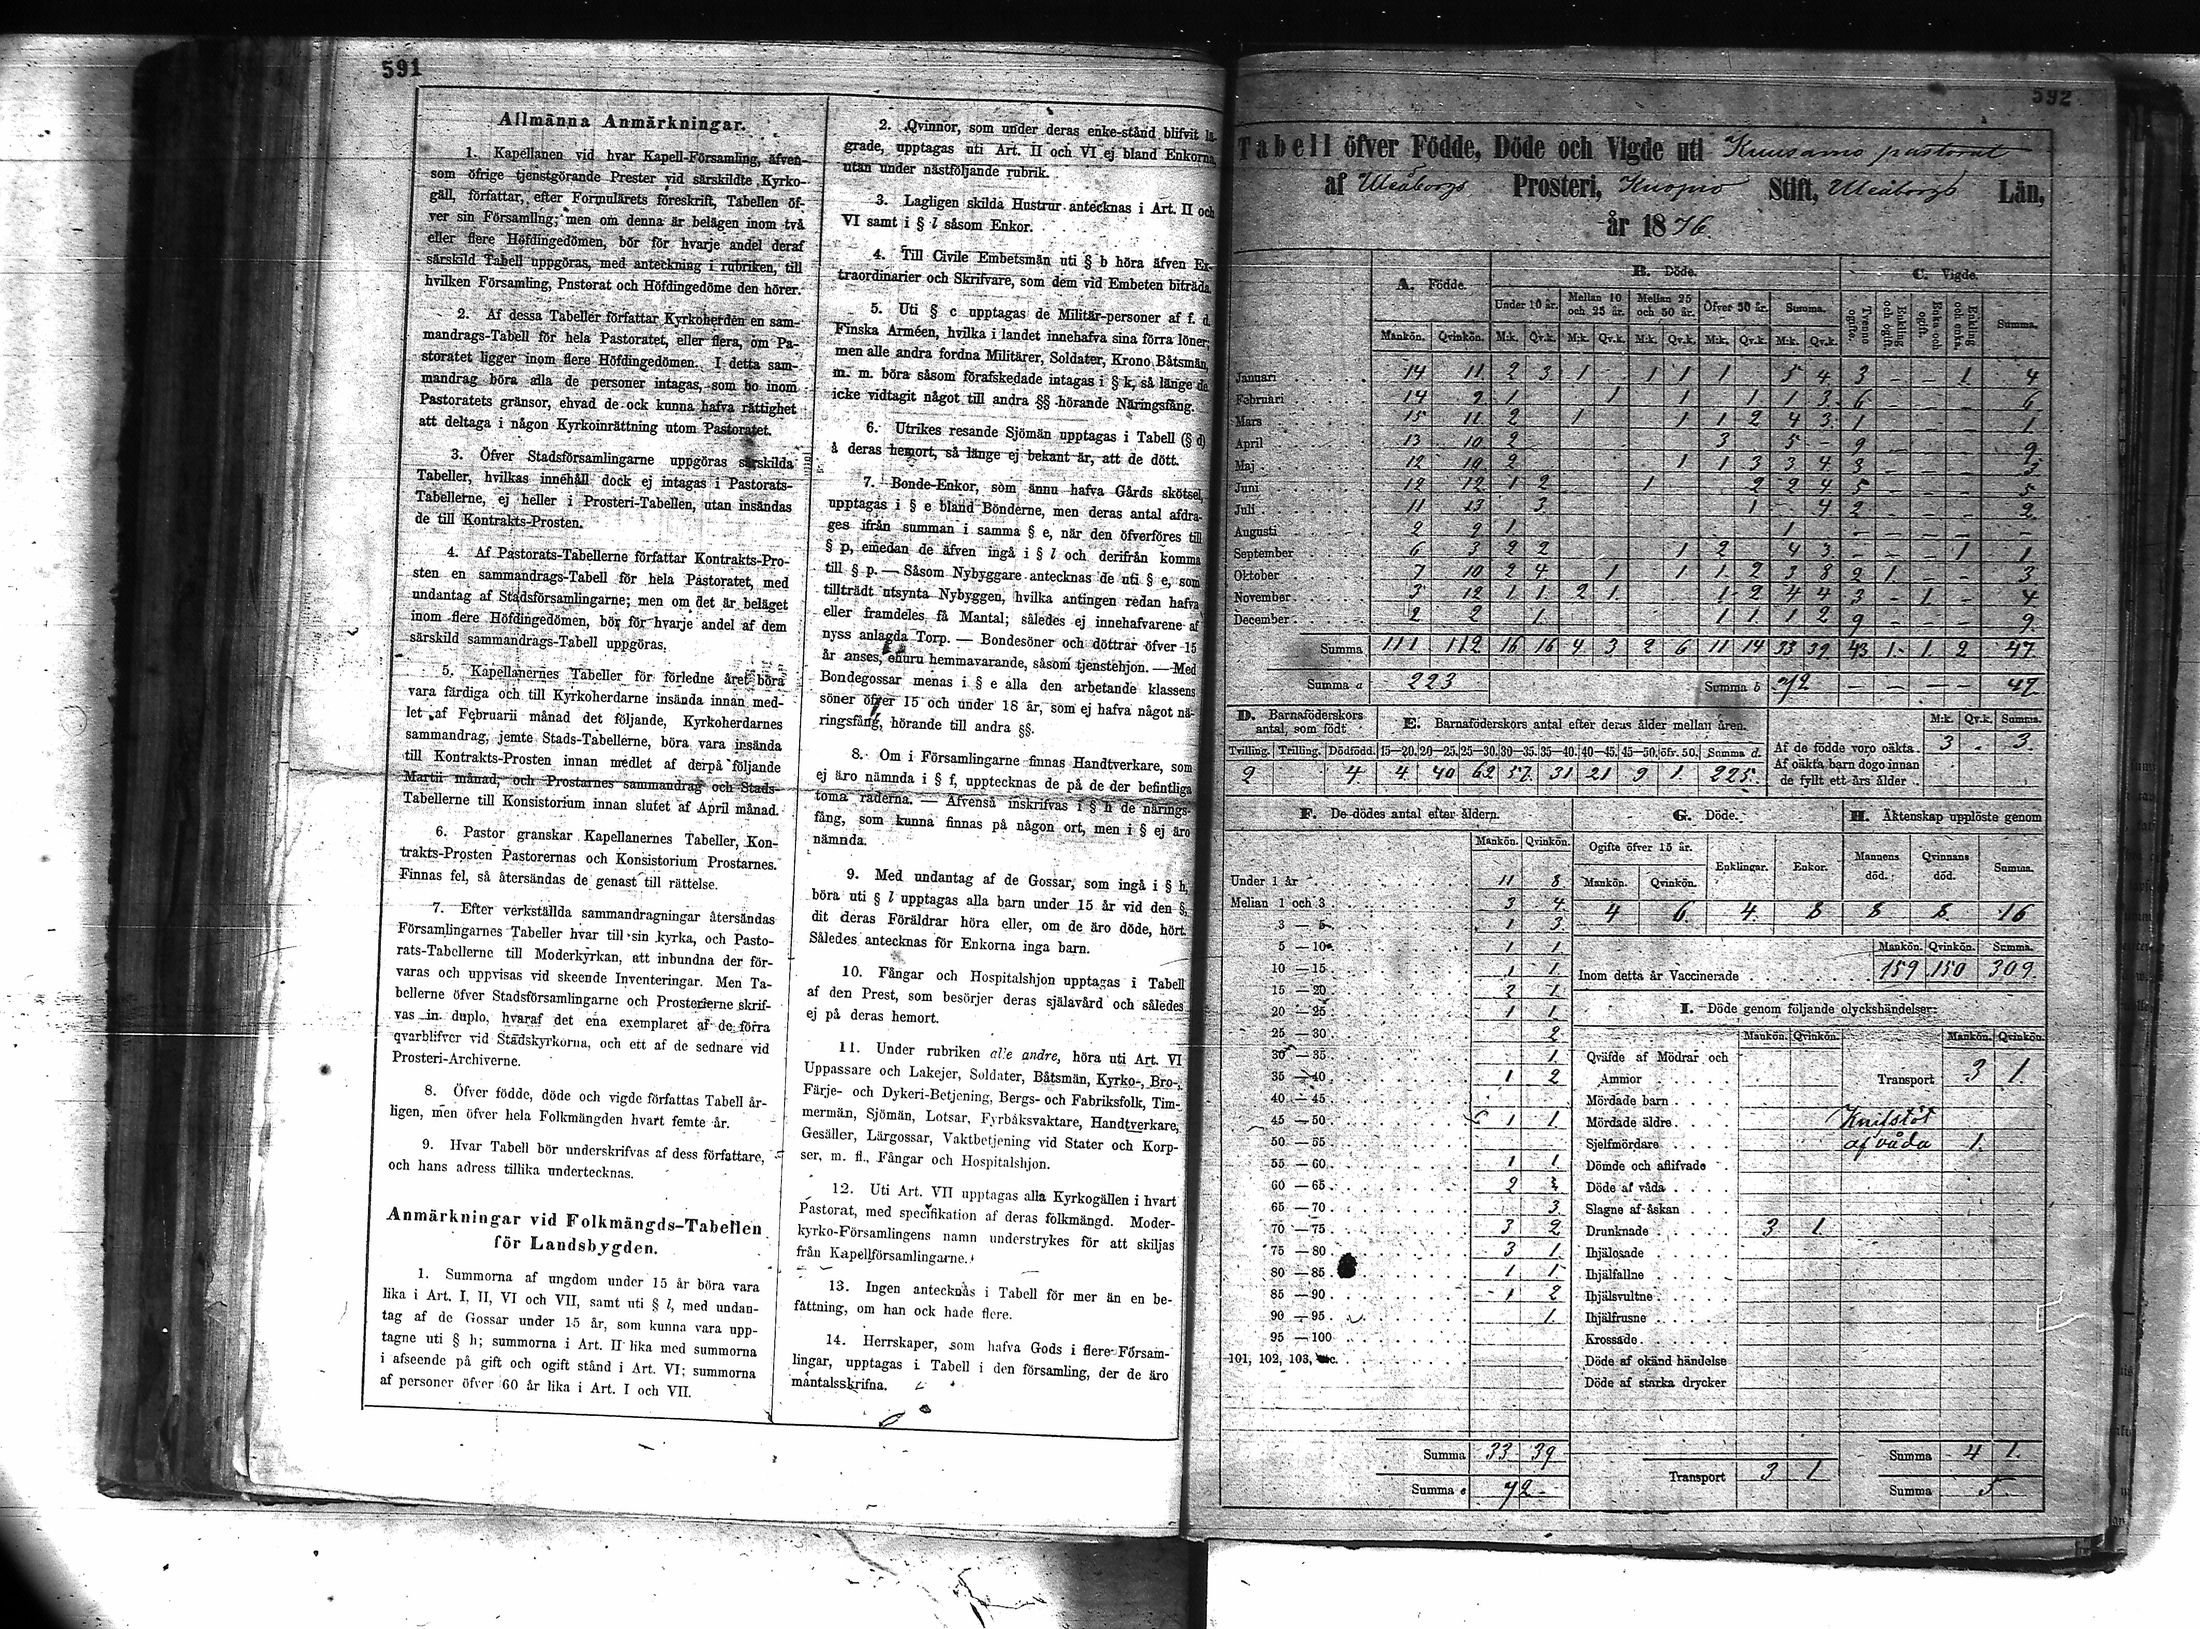 591
Allmänna Anmärkningar.
1. Kapellanen vid hvar Kapell-Församling, äfven-
som öfrige tjenstgörande Prester vid särskildte Kyrko-
gäll, författar, efter Formulärets föreskrift, Tabellen öf-
ver sin Församling; men om denna är belägen inom två
eller flere Höfdingedömen, bör för hvarje andel deraf
särskild Tabell uppgöras, med anteckning i rubriken, till
hvilken Församling, Pastorat och Höfdingedöme den hörer.
2. Af dessa Tabeller författar Kyrkoherden en sam-
mandrags-Tabell för hela Pastoratet, eller flera, om Pa-
storatet ligger inom flere Höfdingedömen. I detta sam-
mandrag böra alla de personer intagas, som bo inom
Pastoratets gränsor, ehvad de ock kunna hafva rättighet
att deltaga i någon Kyrkoinrättning utom Pastoratet.
3. Öfver Stadsförsamlingarne uppgöras särskilda
Tabeller, hvilkas innehåll dock ej intagas i Pastorats-
Tabellerne, ej heller i Prosteri-Tabellen, utan insändas
de till Kontrakts-Prosten.
4. Af Pastorats-Tabellerne författar Kontrakts-Pro-
sten en sammandrags-Tabell för hela Pastoratet, med
undantag af Stadsförsamlingarne; men om det är beläget
inom flere Höfdingedömen, bör för hvarje andel af dem
särskild sammandrags-Tabell uppgöras.
5. Kapellanernes Tabeller för förledne året böra
vara färdiga och till Kyrkoherdarne insända innan med-
let af Februarii månad det följande, Kyrkoherdarnes
sammandrag, jemte Stads-Tabellerne, böra vara insända
till Kontrakts-Prosten innan medlet af derpå följande
Martii månad, och Prostarnes sammandrag och Stads-
Tabellerne till Konsistorium innan slutet af April månad.
6. Pastor granskar Kapellanernes Tabeller, Kon-
trakts-Prosten Pastorernas och Konsistorium Prostarnes.
Finnas fel, så återsändas de genast till rättelse.
7. Efter verkställda sammandragningar återsändas
Församlingarnes Tabeller hvar till sin kyrka, och Pasto-
rats-Tabellerne till Moderkyrkan, att inbundna der för-
varas och uppvisas vid skeende Inventeringar. Men Ta-
bellerne öfver Stadsförsamlingarne och Prosterierne skrif-
vas in duplo, hvaraf det ena exemplaret af de förra
qvarblifver vid Stadskyrkorna, och ett af de sednare vid
Prosteri-Archiverne.
8. Öfver födde, döde och vigde författas Tabell år-
ligen, men öfver hela Folkmängden hvart femte år.
9. Hvar Tabell bör underskrifvas af dess författare,
och hans adress tillika undertecknas.
Anmärkningar vid Folkmängds-Tabellen
för Landsbygden.
1. Summorna af ungdom under 15 år böra vara
lika i Art. I, II, VI och VII, samt uti § l, med undan-
tag af de Gossar under 15 år, som kunna vara upp-
tagne uti § h; summorna i Art. II lika med summorna
i afseende på gift och ogift stånd i Art. VI; summorna
af personer öfver 60 år lika i Art. I och VII.
2. Qvinnor, som under deras enke-stånd blifvit lä-
grade, upptagas uti Art. II och VI ej bland Enkorna,
utan under nästföljande rubrik.
3. Lagligen skilda Hustrur antecknas i Art. II och
VI samt i § l såsom Enkor.
4. Till Civile Embetsmän uti § b höra äfven Ex-
traordinarier och Skrifvare, som dem vid Embeten biträda.
5. Uti § c upptagas de Militär-personer af f. d.
Finska Arméen, hvilka i landet innehafva sina förra löner;
men alle andra fordna Militärer, Soldater, Krono Båtsmän,
m. m. böra såsom förafskedade intagas i § k, så länge de
icke vidtagit något till andra §§ hörande Näringsfång.
6. Utrikes resande Sjömän upptagas i Tabell (§ d)
å deras hemort, så länge ej bekant är, att de dött.
7. Bonde-Enkor, som ännu hafva Gårds skötsel,
upptagas i § e bland Bönderne, men deras antal afdra-
ges ifrån summan i samma § e, när den öfverföres till
§ p, emedan de äfven ingå i § l och derifrån komma
till § p. — Såsom Nybyggare antecknas de uti § e, som
tillträdt utsynta Nybyggen, hvilka antingen redan hafva
eller framdeles få Mantal; således ej innehafvarene af
nyss anlagda Torp. — Bondesöner och döttrar öfver 15
år anses, ehuru hemmavarande, såsom tjenstehjon. — Med
Bondegossar menas i § e alla den arbetande klassens
söner öfver 15 och under 18 år, som ej hafva något nä-
ringsfång, hörande till andra §§.
8. Om i Församlingarne finnas Handtverkare, som
ej äro nämnda i § f, upptecknas de på de der befintliga
toma raderna. — Äfvenså inskrifvas i § h de närings-
fång, som kunna finnas på någon ort, men i § ej äro
nämnda.
9. Med undantag af de Gossar, som ingå i § h,
böra uti § l upptagas alla barn under 15 år vid den §,
dit deras Föräldrar höra eller, om de äro döde, hört.
Således antecknas för Enkorna inga barn.
10. Fångar och Hospitalshjon upptagas i Tabell
af den Prest, som besörjer deras själavård och således
ej på deras hemort.
11. Under rubriken alle andre, höra uti Art. VI
Uppassare och Lakejer, Soldater, Båtsmän, Kyrko-, Bro-,
Färje- och Dykeri-Betjening, Bergs- och Fabriksfolk, Tim-
mermän, Sjömän, Lotsar, Fyrbåksvaktare, Handtverkare,
Gesäller, Lärgossar, Vaktbetjening vid Stater och Korp-
ser, m. fl., Fångar och Hospitalshjon.
12. Uti Art. VII upptagas alla Kyrkogällen i hvart
Pastorat, med specifikation af deras folkmängd. Moder-
kyrko-Församlingens namn understrykes för att skiljas
från Kapellförsamlingarne.
13. Ingen antecknas i Tabell för mer än en be-
fattning, om han ock hade flere.
14. Herrskaper, som hafva Gods i flere Försam-
lingar, upptagas i Tabell i den församling, der de äro
mantalsskrifna.
592
Tabell öfver Födde, Döde och Vigde uti Kuusamo pastorat
af Uleåborgs Prosteri, Kuopio Stift, Uleåborgs Län,
år 1876.
A. Födde. B. Döde. C. Vigde.
Under 10 år. Mellan 10 och 25 år. Mellan 25 och 50 år. Öfver 50 år. Summa. Tvenne ogifte. Enkling och ogift. Enka och ogift. Enkling och enka. Summa.
Mankön. Qvinkön. M:k. Qv.k. M:k. Qv.k. M:k. Qv.k. M:k. Qv.k. M:k. Qv.k.
Januari 14 11 2 3 1 1 1 1 5 4 3 – 1 4
Februari 14 9 1 1 1 1 1 3 6 6
Mars 15 11 2 1 1 1 2 4 3 1 1
April 13 10 2 3 5 – 9 9
Maj 12 10 2 1 1 3 3 4 3 – – – 3
Juni 12 12 1 2 1 2 2 4 5 – – – 5
Juli 11 13 3 1 4 2 – – – 2
Augusti 2 9 1 1 – – – – –
September 6 3 2 2 1 2 4 3 – – – 1 1
Oktober 7 10 2 4 1 1 1 2 3 8 2 1 – – 3
November 3 12 1 1 2 1 1 2 4 4 3 – 1 – 4
December 2 2 1 1 1 1 2 9 9
Summa 111 112 16 16 4 3 2 6 11 14 33 39 43 1 1 2 47
Summa a 223 Summa b 72 – – – – 47
D. Barnaföderskors antal, som födt E. Barnaföderskors antal efter deras ålder mellan åren. M:k. Qv.k. Summa.
Tvilling. Trilling. Dödfödd. 15—20. 20—25. 25—30. 30—35. 35—40. 40—45. 45—50. öfv. 50. Summa d.
2 4 4 40 62 57 31 21 9 1 225
Af de födde voro oäkta 3 . 3
Af oäkta barn dogo innan
de fyllt ett års ålder
F. De dödes antal efter åldern. G. Döde. H. Äktenskap upplöste genom
Mankön. Qvinkön. Ogifte öfver 15 år. Enklingar. Enkor. Mannens död. Qvinnans död. Summa.
Mankön. Qvinkön.
4 6 4 8 8 8 16
Under 1 år 11 8
Mellan 1 och 3 3 4
3 — 5 1 3
5 — 10 1 1
10 — 15 1 1
15 — 20 2 1
20 — 25 1 1
25 — 30 2
30 — 35 1
35 — 40 1 2
40 — 45
45 — 50 1 1
50 — 55
55 — 60 1 1
60 — 65 2
65 — 70 3
70 — 75 3 2
75 — 80 3 1
80 — 85 1 1
85 — 90 1 2
90 — 95 1
95 — 100
101, 102, 103, etc.
Summa 33 39
Summa e 72
Mankön. Qvinkön. Summa.
Inom detta år Vaccinerade 159 150 309
I. Döde genom följande olyckshändelser:
Mankön. Qvinkön. Mankön. Qvinkön.
Qväfde af Mödrar och
Ammor Transport 3 1
Mördade barn
Mördade äldre Knifstöt
Sjelfmördare af våda 1
Dömde och aflifvade
Döde af våda
Slagne af åskan
Drunknade 3 1
Ihjälosade
Ihjälfallne
Ihjälsvultne
Ihjälfrusne
Krossade
Döde af okänd händelse
Döde af starka drycker
Summa 4 1
Transport 3 1 Summa 5